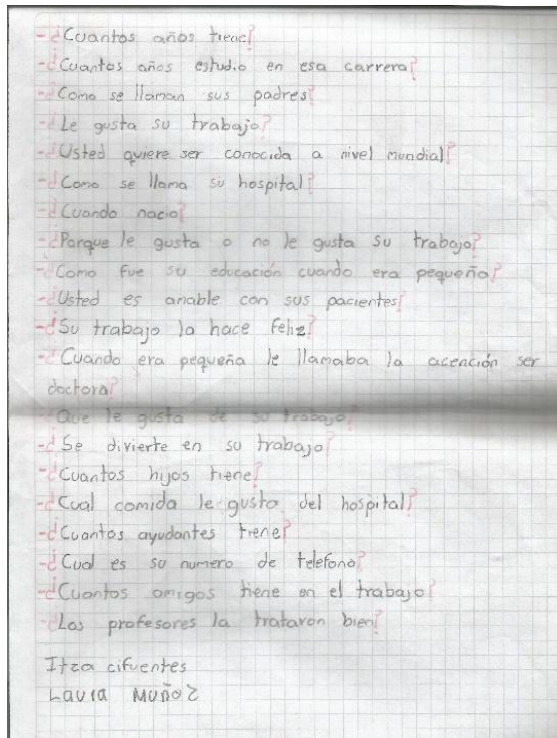 -¿Cuantos años tiene?
-¿Cuantos años estudio en esa carrera?
-¿Como se llaman sus padres?
-¿Le gusta su trabajo?
-¿Usted quiere ser conocida a nivel mundial?
-¿Como se llama su hospital?
-¿Cuando nacio?
-¿Porque le gusta o no le gusta su trabajo?
-¿Como fue su educación cuando era pequeño?
-¿Usted es amable con sus pacientes?
-¿Su trabajo la hace feliz?
-¿Cuando era pequeña le llamaba la acención ser
doctora?
-¿Que le gusta de su trabajo?
-¿Se divierte en su trabajo?
-¿Cuantos hijos tiene?
-¿Cual comida le gusto del hospital?
-¿Cuantos ayudantes tiene?
-¿Cual es su numero de telefono?
-¿Cuantos amigos tiene en el trabajo?
-¿Los profesores la trataron bien?
Itza cifuentes
Laura Muñoz